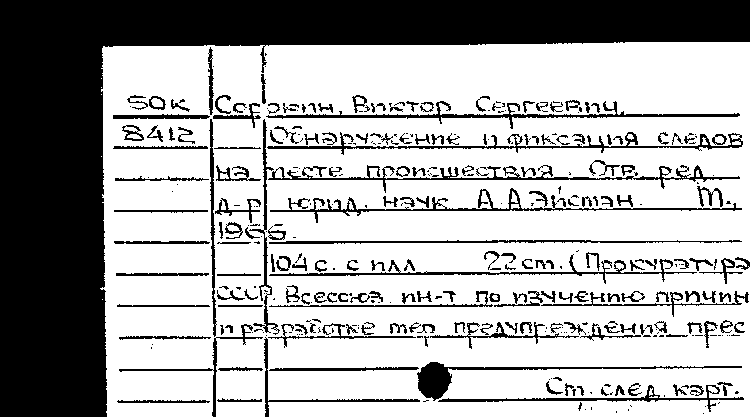 50к Сорокин, Виктор Сергеевич.
8412 Обнаружение и фиксация следов
на месте происшествия. Отв. ред.
д-р юрид. наук А.А.Эйсман. М.,
1966.
104 с. с илл. 22 см. (Прокуратура
СССР. Всесоюз. ин-т по изучению причин
и разработке мер предупреждения прес
См. след. карт.